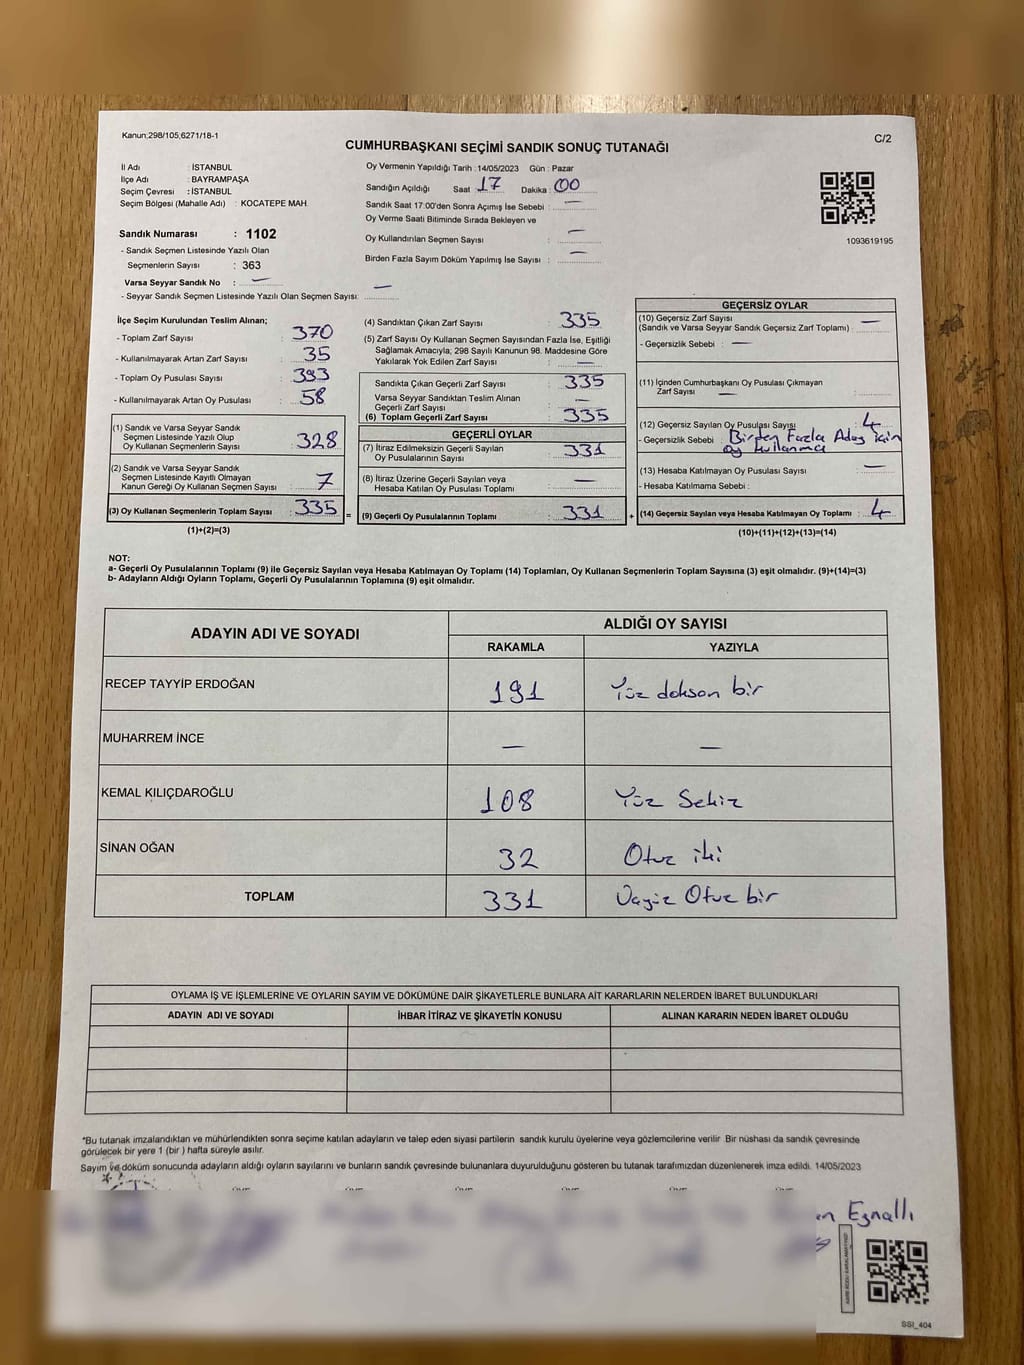 Kanun;298/105;6271/18-1
C/2
CUMHURBAŞKANI SEÇİMİ SANDIK SONUÇ TUTANAĞI
İl Adı : İSTANBUL
İlçe Adı : BAYRAMPAŞA
Seçim Çevresi : İSTANBUL
Seçim Bölgesi (Mahalle Adı) : KOCATEPE MAH.
Sandık Numarası : 1102
- Sandık Seçmen Listesinde Yazılı Olan
Seçmenlerin Sayısı : 363
Varsa Seyyar Sandık No : —
- Seyyar Sandık Seçmen Listesinde Yazılı Olan Seçmen Sayısı: —
Oy Vermenin Yapıldığı Tarih : 14/05/2023 Gün : Pazar
Sandığın Açıldığı Saat 17 Dakika : 00
Sandık Saat 17:00'den Sonra Açımış İse Sebebi : —
Oy Verme Saati Bitiminde Sırada Bekleyen ve
Oy Kullandırılan Seçmen Sayısı : —
Birden Fazla Sayım Döküm Yapılmış İse Sayısı : —
1093619195
İlçe Seçim Kurulundan Teslim Alınan;
- Toplam Zarf Sayısı : 370
- Kullanılmayarak Artan Zarf Sayısı : 35
- Toplam Oy Pusulası Sayısı : 393
- Kullanılmayarak Artan Oy Pusulası : 58
(1) Sandık ve Varsa Seyyar Sandık
Seçmen Listesinde Yazılı Olup
Oy Kullanan Seçmenlerin Sayısı : 328
(2) Sandık ve Varsa Seyyar Sandık
Seçmen Listesinde Kayıtlı Olmayan
Kanun Gereği Oy Kullanan Seçmen Sayısı : 7
(3) Oy Kullanan Seçmenlerin Toplam Sayısı : 335 =
(1)+(2)=(3)
(4) Sandıktan Çıkan Zarf Sayısı : 335
(5) Zarf Sayısı Oy Kullanan Seçmen Sayısından Fazla İse, Eşitliği
Sağlamak Amacıyla; 298 Sayılı Kanunun 98. Maddesine Göre
Yakılarak Yok Edilen Zarf Sayısı : —
Sandıkta Çıkan Geçerli Zarf Sayısı : 335
Varsa Seyyar Sandıktan Teslim Alınan
Geçerli Zarf Sayısı : —
(6) Toplam Geçerli Zarf Sayısı : 335
GEÇERLİ OYLAR
(7) İtiraz Edilmeksizin Geçerli Sayılan
Oy Pusulalarının Sayısı : 331
(8) İtiraz Üzerine Geçerli Sayılan veya
Hesaba Katılan Oy Pusulası Toplamı : —
(9) Geçerli Oy Pusulalarının Toplamı : 331 +
GEÇERSİZ OYLAR
(10) Geçersiz Zarf Sayısı
(Sandık ve Varsa Seyyar Sandık Geçersiz Zarf Toplamı) : —
- Geçersizlik Sebebi : —
(11) İçinden Cumhurbaşkanı Oy Pusulası Çıkmayan
Zarf Sayısı : —
(12) Geçersiz Sayılan Oy Pusulası Sayısı : 4
- Geçersizlik Sebebi : Birden Fazla Aday için
oy kullanma
(13) Hesaba Katılmayan Oy Pusulası Sayısı : —
- Hesaba Katılmama Sebebi :
(14) Geçersiz Sayılan veya Hesaba Katılmayan Oy Toplamı : 4
(10)+(11)+(12)+(13)=(14)
NOT:
a- Geçerli Oy Pusulalarının Toplamı (9) ile Geçersiz Sayılan veya Hesaba Katılmayan Oy Toplamı (14) Toplamları, Oy Kullanan Seçmenlerin Toplam Sayısına (3) eşit olmalıdır. (9)+(14)=(3)
b- Adayların Aldığı Oyların Toplamı, Geçerli Oy Pusulalarının Toplamına (9) eşit olmalıdır.
ADAYIN ADI VE SOYADI
ALDIĞI OY SAYISI
RAKAMLA YAZIYLA
RECEP TAYYİP ERDOĞAN 191 Yüz doksan bir
MUHARREM İNCE — —
KEMAL KILIÇDAROĞLU 108 Yüz Sekiz
SİNAN OĞAN 32 Otuz iki
TOPLAM 331 Üçyüz Otuz bir
OYLAMA İŞ VE İŞLEMLERİNE VE OYLARIN SAYIM VE DÖKÜMÜNE DAİR ŞİKAYETLERLE BUNLARA AİT KARARLARIN NELERDEN İBARET BULUNDUKLARI
ADAYIN ADI VE SOYADI İHBAR İTİRAZ VE ŞİKAYETİN KONUSU ALINAN KARARIN NEDEN İBARET OLDUĞU
*Bu tutanak imzalandıktan ve mühürlendikten sonra seçime katılan adayların ve talep eden siyasi partilerin sandık kurulu üyelerine veya gözlemcilerine verilir. Bir nüshası da sandık çevresinde
görülecek bir yere 1 (bir ) hafta süreyle asılır.
Sayım ve döküm sonucunda adayların aldığı oyların sayılarını ve bunların sandık çevresinde bulunanlara duyurulduğunu gösteren bu tutanak tarafımızdan düzenlenerek imza edildi. 14/05/2023
SSI_404